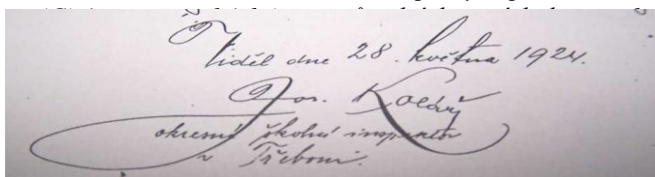 Viděl dne 28. května 1924.
Jos. Kolář
okresní školní inspektor
v Třeboni.